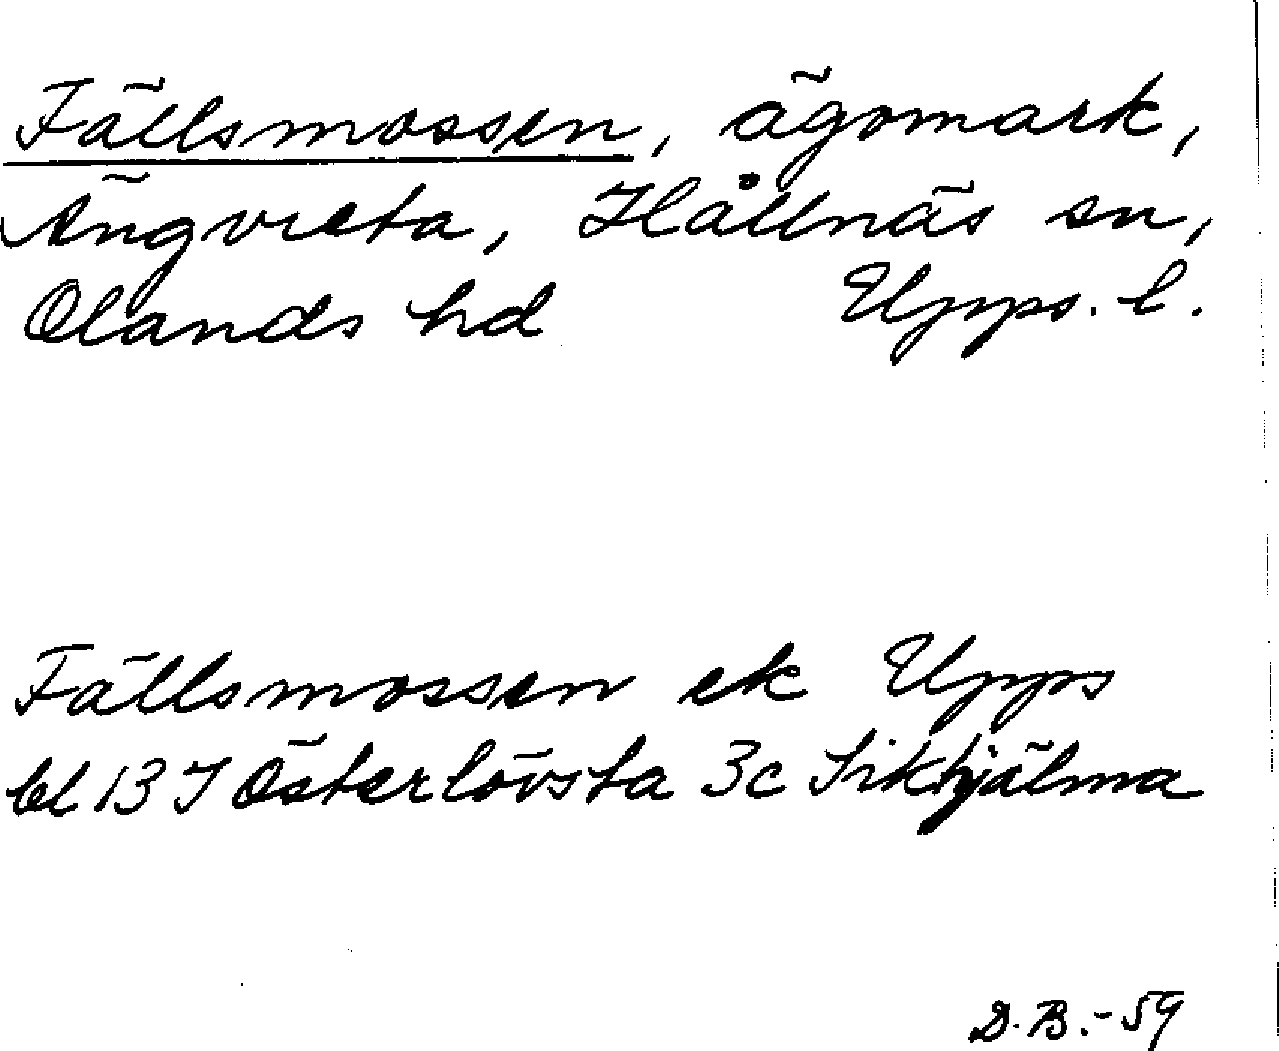 Fällsmossen, ägomark,
Ängvreta, Hållnäs sn,
Olands hd Upps. l.
Fällsmossen ek Upps
bl 13 I Österlövsta 3c Sikhjälma
D.B.-59